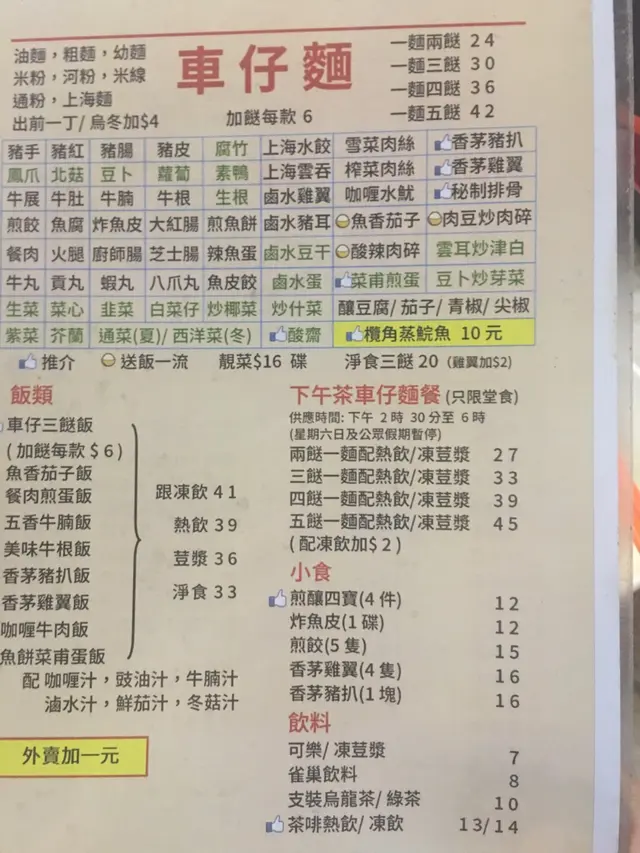 油麵，粗麵，幼麵
米粉，河粉，米線
通粉，上海麵
出前一丁/ 烏冬加$4
車仔麵
加餸每款 6
一麵兩餸 24
一麵三餸 30
一麵四餸 36
一麵五餸 42
豬手 豬紅 豬腸 豬皮 腐竹 上海水餃 雪菜肉絲 香茅豬扒
鳳爪 北菇 豆卜 蘿蔔 素鴨 上海雲吞 榨菜肉絲 香茅雞翼
牛展 牛肚 牛腩 牛根 生根 鹵水雞翼 咖喱水魷 秘制排骨
煎餃 魚腐 炸魚皮 大紅腸 煎魚餅 鹵水豬耳 魚香茄子 肉豆炒肉碎
餐肉 火腿 廚師腸 芝士腸 辣魚蛋 鹵水豆干 酸辣肉碎 雲耳炒津白
牛丸 貢丸 蝦丸 八爪丸 魚皮餃 鹵水蛋 菜甫煎蛋 豆卜炒芽菜
生菜 菜心 韭菜 白菜仔 炒椰菜 炒什菜 釀豆腐/ 茄子/ 青椒/ 尖椒
紫菜 芥蘭 通菜(夏)/ 西洋菜(冬) 酸齋 欖角蒸鯇魚 10 元
推介 送飯一流 靚菜$16 碟 淨食三餸 20 (雞翼加$2)
飯類
車仔三餸飯
( 加餸每款 $ 6 )
魚香茄子飯
餐肉煎蛋飯
五香牛腩飯
美味牛根飯
香茅豬扒飯
香茅雞翼飯
咖喱牛肉飯
魚餅菜甫蛋飯
跟凍飲 41
熱飲 39
荳漿 36
淨食 33
配 咖喱汁，豉油汁，牛腩汁
滷水汁，鮮茄汁，冬菇汁
外賣加一元
下午茶車仔麵餐 (只限堂食)
供應時間: 下午 2 時 30 分至 6 時
(星期六日及公眾假期暫停)
兩餸一麵配熱飲/凍荳漿 27
三餸一麵配熱飲/凍荳漿 33
四餸一麵配熱飲/凍荳漿 39
五餸一麵配熱飲/凍荳漿 45
( 配凍飲加$ 2 )
小食
煎釀四寶(4 件) 12
炸魚皮(1 碟) 12
煎餃(5 隻) 15
香茅雞翼(4 隻) 16
香茅豬扒(1 塊) 16
飲料
可樂/ 凍荳漿 7
雀巢飲料 8
支裝烏龍茶/ 綠茶 10
茶啡熱飲/ 凍飲 13/14